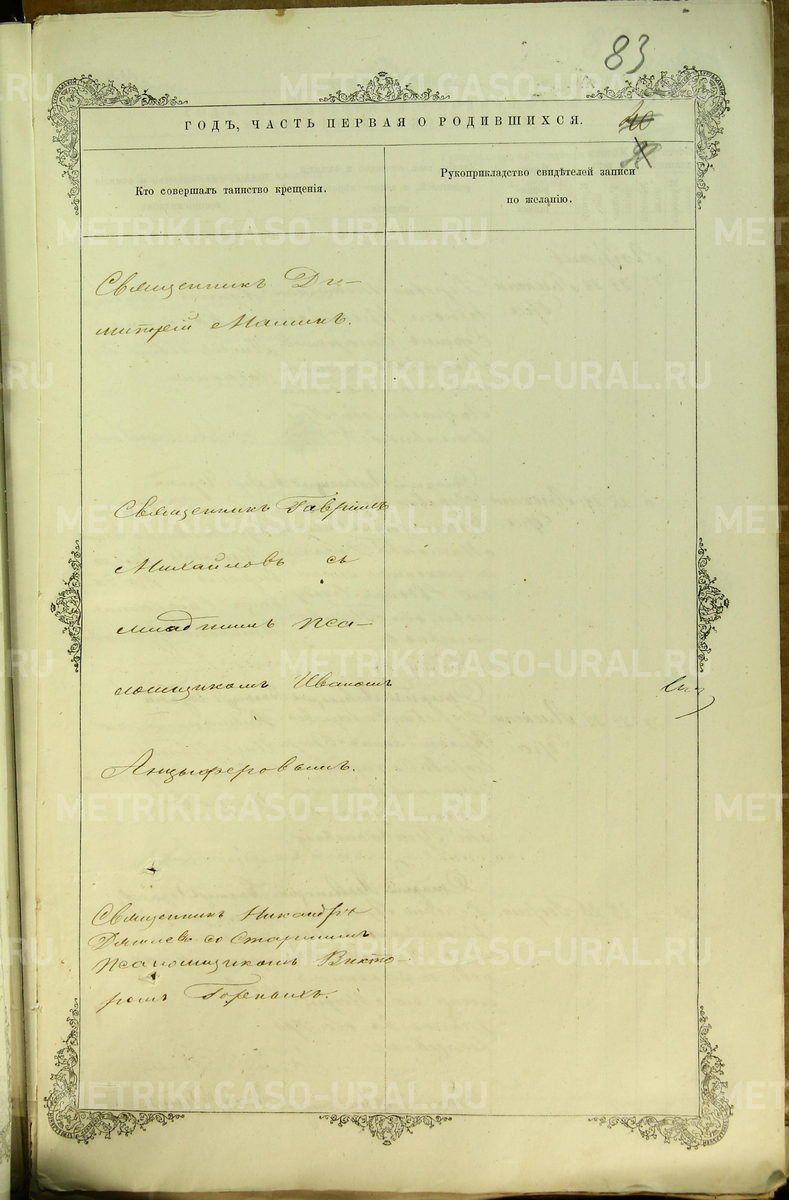 83
ГОДЪ, ЧАСТЬ ПЕРВАЯ О РОДИВШИХСЯ.
Кто совершалъ таинство крещенія.
Рукоприкладство свидѣтелей записи
по желанію.
Священникъ Ди-
митрій Маминъ.
Священникъ Гавріилъ
Михайловъ съ
младшимъ Пса-
ломщикомъ Иваномъ
Анцыферовымъ.
Священникъ Никандръ
со Старшимъ
Псаломщикомъ Викто-
ромъ
METRIKI.GASO-URAL.RU